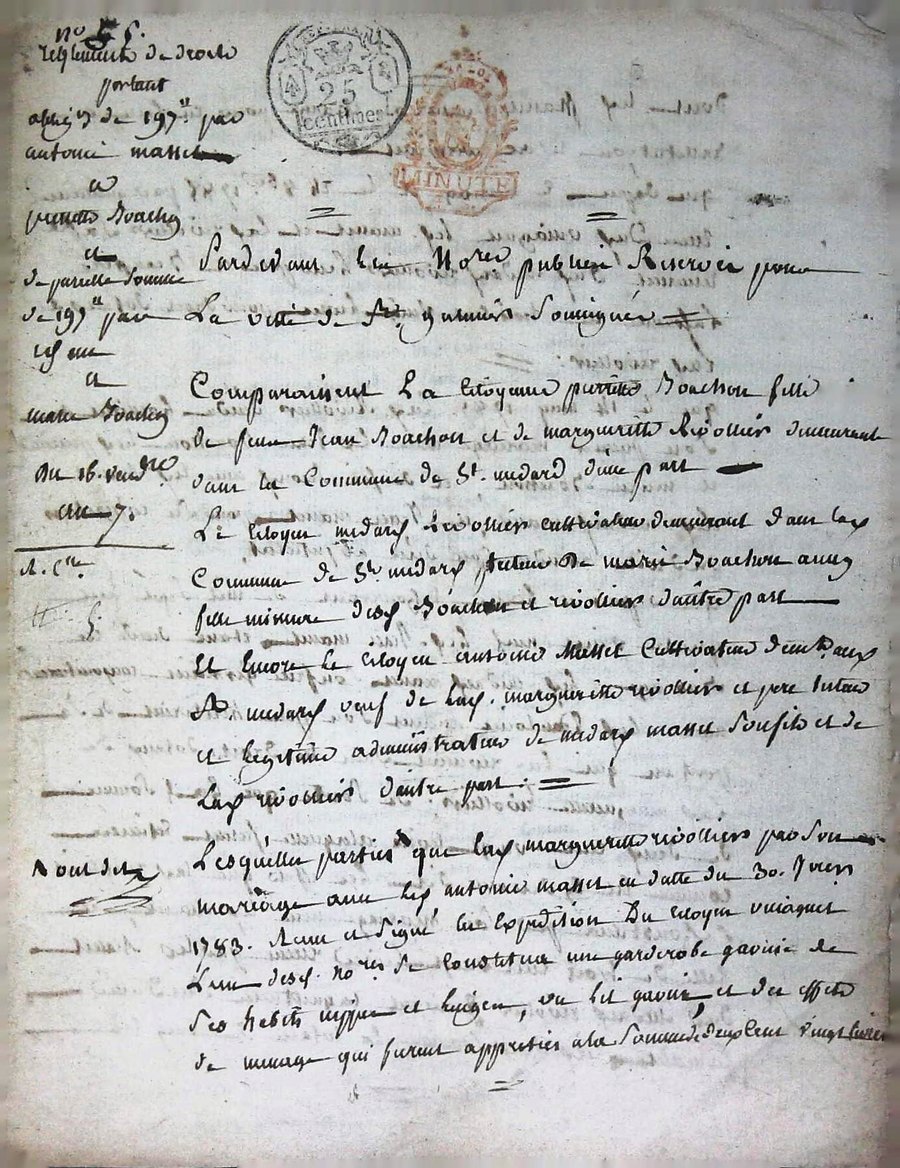 no 55.
reglement de droits
portant
oblig.on de 197.tt par
antoine masset
a
pierrette Boachon
et
de pareille Somme
de 197tt par
led. me
a
marie Boachon
Du 16. vend.re
an 7.
25
centimes
MINUTE
Pardevant Les No.res publics Reservés pour
La ville de St. galmier Soussignés
Comparaissent La Citoyenne pierrette Boachon fille
de feu Jean Boachon et de margueritte Rivollier demeurant
dans la Commune de St. medard d'une part
Le Citoyen medard Rivollier cultivateur demeurant dans lad.
Commune de St. medard, tuteur De marie Boachon aussy
fille mineure desd. Boachon et rivollier d'autre part
Et Encore Le Citoyen antoine Masset Cultivateur dem.t aud.
St. medard veuf de Lad. margueritte rivollier et pere tuteur
et legitime administrateur de medard masset Son fils et de
Lad. rivollier d'autre part.
ont dit
Lesquelles parties que lad. margueritte rivollier par Son
mariage avec Led. antoine masset en datte du 30. Jvier
1783. Recu et Signé En Expedition Du Citoyen
L'un desd. No.res Se Constitua une garderobe garnie de
Ses habits nippes et Linges, un Lit garni, et des effets
de menage qui furent appretiés a la Somme de deux Cent vingt Livres